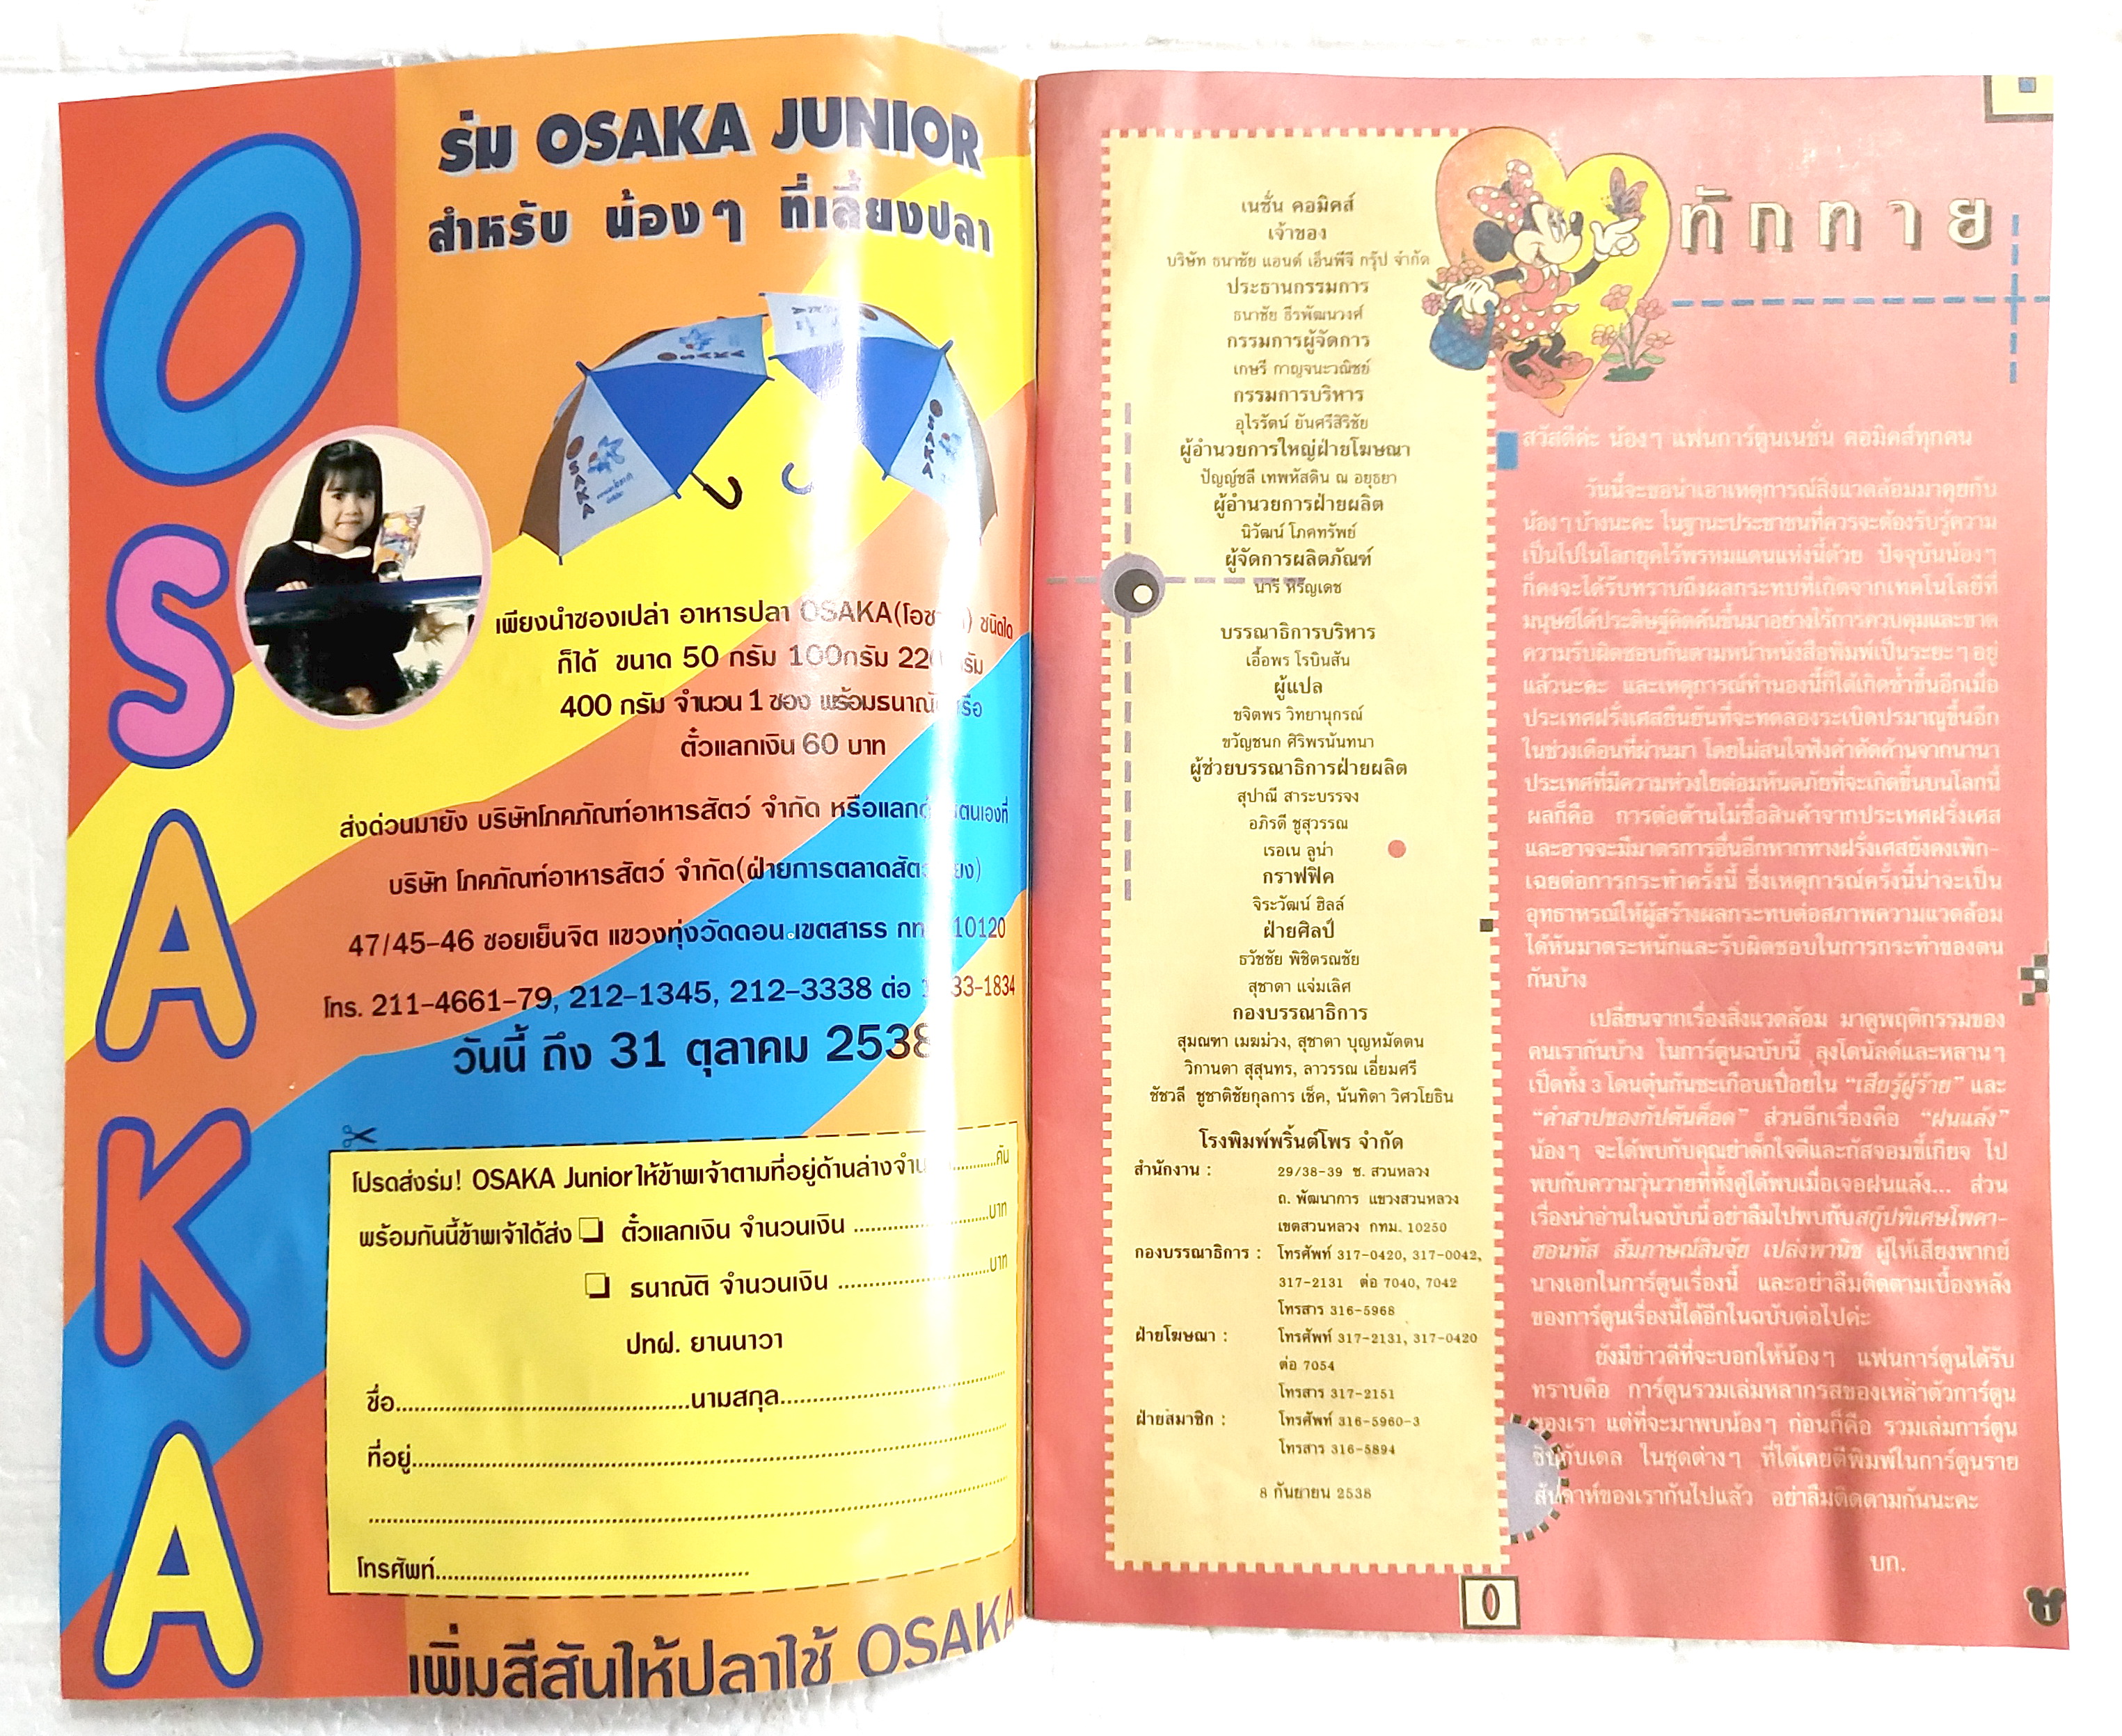 OSAKA
ร่ม OSAKA JUNIOR
สำหรับ น้องๆ ที่เลี้ยงปลา
OSAKA
OSAKA
OSAKA
เพียงนำซองเปล่า อาหารปลา OSAKA ชนิดใด
ก็ได้ ขนาด 50 กรัม 100กรัม
400 กรัม จำนวน 1 ซอง พร้อม
ตั๋วแลกเงิน 60 บาท
ส่งด่วนมายัง บริษัทโภคภัณฑ์อาหารสัตว์ จำกัด หรือแลก
บริษัท โภคภัณฑ์อาหารสัตว์ จำกัด(ฝ่ายการตลาด
47/45-46 ซอยเย็นจิต แขวงทุ่งวัดดอน เขตสาธร 10120
โทร. 211-4661-79, 212-1345, 212-3338 ต่อ
วันนี้ ถึง 31 ตุลาคม 2538
โปรดส่งร่ม! OSAKA Junior ให้ข้าพเจ้าตามที่อยู่ด้านล่าง ..........คัน
พร้อมกันนี้ข้าพเจ้าได้ส่ง ❏ ตั๋วแลกเงิน จำนวนเงิน ....................บาท
❏ ธนาณัติ จำนวนเงิน ....................บาท
ปทฝ. ยานนาวา
ชื่อ........................................นามสกุล..............................
ที่อยู่..............................
โทรศัพท์..............................
เพิ่มสีสันให้ปลาใช้ OSAKA
ทักทาย
เนชั่น คอมิคส์
เจ้าของ
บริษัท ธนาชัย แอนด์ เอ็นพีจี กรุ๊ป จำกัด
ประธานกรรมการ
ธนาชัย ธีรพัฒนวงศ์
กรรมการผู้จัดการ
เกษรี กาญจนะวณิชย์
กรรมการบริหาร
อุไรรัตน์ ยันศรีสิริชัย
ผู้อำนวยการใหญ่ฝ่ายโฆษณา
ปัญญ์ชลี เทพหัสดิน ณ อยุธยา
ผู้อำนวยการฝ่ายผลิต
นิวัฒน์ โภคทรัพย์
ผู้จัดการผลิตภัณฑ์
นารี หิรัญเดช
บรรณาธิการบริหาร
เอื้อพร โรบินสัน
ผู้แปล
ขจิตพร วิทยานุกรณ์
ขวัญชนก ศิริพรนันทนา
ผู้ช่วยบรรณาธิการฝ่ายผลิต
สุปาณี สาระบรรจง
อภิรดี ชูสุวรรณ
เรอเน ลูน่า
กราฟฟิค
จิระวัฒน์ ฮิลล์
ฝ่ายศิลป์
ธวัชชัย พิชิตรณชัย
สุชาดา แจ่มเลิศ
กองบรรณาธิการ
สุมณฑา เมฆม่วง, สุชาดา บุญหมัดตน
วิกานดา สุสุนทร, ลาวรรณ เอี่ยมศรี
ชัชวลี ชูชาติชัยกุลการ เช็ค, นันทิดา วิศวโยธิน
โรงพิมพ์พริ้นต์โพร จำกัด
สำนักงาน : 29/38-39 ซ. สวนหลวง
ถ. พัฒนาการ แขวงสวนหลวง
เขตสวนหลวง กทม. 10250
กองบรรณาธิการ : โทรศัพท์ 317-0420, 317-0042,
317-2131 ต่อ 7040, 7042
โทรสาร 316-5968
ฝ่ายโฆษณา : โทรศัพท์ 317-2131, 317-0420
ต่อ 7054
โทรสาร 317-2151
ฝ่ายสมาชิก : โทรศัพท์ 316-5960-3
โทรสาร 316-5894
8 กันยายน 2538
สวัสดีค่ะ น้องๆ แฟนการ์ตูนเนชั่น คอมิคส์ทุกคน
วันนี้จะขอนำเอาเหตุการณ์สิ่งแวดล้อมมาคุยกับ
น้องๆ บ้างนะคะ ในฐานะประชาชนที่ควรจะต้องรับรู้ความ
เป็นไปในโลกยุคไร้พรหมแดนแห่งนี้ด้วย ปัจจุบันน้องๆ
ก็คงจะได้รับทราบถึงผลกระทบที่เกิดจากเทคโนโลยีที่
มนุษย์ได้ประดิษฐ์คิดค้นขึ้นมาอย่างไร้การควบคุมและขาด
ความรับผิดชอบกันตามหน้าหนังสือพิมพ์เป็นระยะๆ อยู่
แล้วนะคะ และเหตุการณ์ทำนองนี้ก็ได้เกิดซ้ำขึ้นอีกเมื่อ
ประเทศฝรั่งเศสยืนยันที่จะทดลองระเบิดปรมาณูขึ้นอีก
ในช่วงเดือนที่ผ่านมา โดยไม่สนใจฟังคำคัดค้านจากนานา
ประเทศที่มีความห่วงใยต่อมหันตภัยที่จะเกิดขึ้นบนโลกนี้
ผลก็คือ การต่อต้านไม่ซื้อสินค้าจากประเทศฝรั่งเศส
และอาจจะมีมาตรการอื่นอีกหากทางฝรั่งเศสยังคงเพิก-
เฉยต่อการกระทำครั้งนี้ ซึ่งเหตุการณ์ครั้งนี้น่าจะเป็น
อุทธาหรณ์ให้ผู้สร้างผลกระทบต่อสภาพความแวดล้อม
ได้หันมาตระหนักและรับผิดชอบในการกระทำของตน
กันบ้าง
เปลี่ยนจากเรื่องสิ่งแวดล้อม มาดูพฤติกรรมของ
คนเรากันบ้าง ในการ์ตูนฉบับนี้ ลุงโดนัลด์และหลานๆ
เป็ดทั้ง 3 โดนตุ๋นกันซะเกือบเปื่อยใน “เสียรู้ผู้ร้าย” และ
“คำสาปของกัปตันค็อด” ส่วนอีกเรื่องคือ “ฝนแล้ง”
น้องๆ จะได้พบกับคุณย่าดั๊กใจดีและกัสจอมขี้เกียจ ไป
พบกับความวุ่นวายที่ทั้งคู่ได้พบเมื่อเจอฝนแล้ง... ส่วน
เรื่องน่าอ่านในฉบับนี้ อย่าลืมไปพบกับสกู๊ปพิเศษโพคา-
ฮอนทัส สัมภาษณ์สินจัย เปล่งพานิช ผู้ให้เสียงพากย์
นางเอกในการ์ตูนเรื่องนี้ และอย่าลืมติดตามเบื้องหลัง
ของการ์ตูนเรื่องนี้ได้อีกในฉบับต่อไปค่ะ
ยังมีข่าวดีที่จะบอกให้น้องๆ แฟนการ์ตูนได้รับ
ทราบคือ การ์ตูนรวมเล่มหลากรสของเหล่าตัวการ์ตูน
ของเรา แต่ที่จะมาพบน้องๆ ก่อนก็คือ รวมเล่มการ์ตูน
ชิปกับเดล ในชุดต่างๆ ที่ได้เคยตีพิมพ์ในการ์ตูนราย
สัปดาห์ของเรากันไปแล้ว อย่าลืมติดตามกันนะคะ
บก.
1